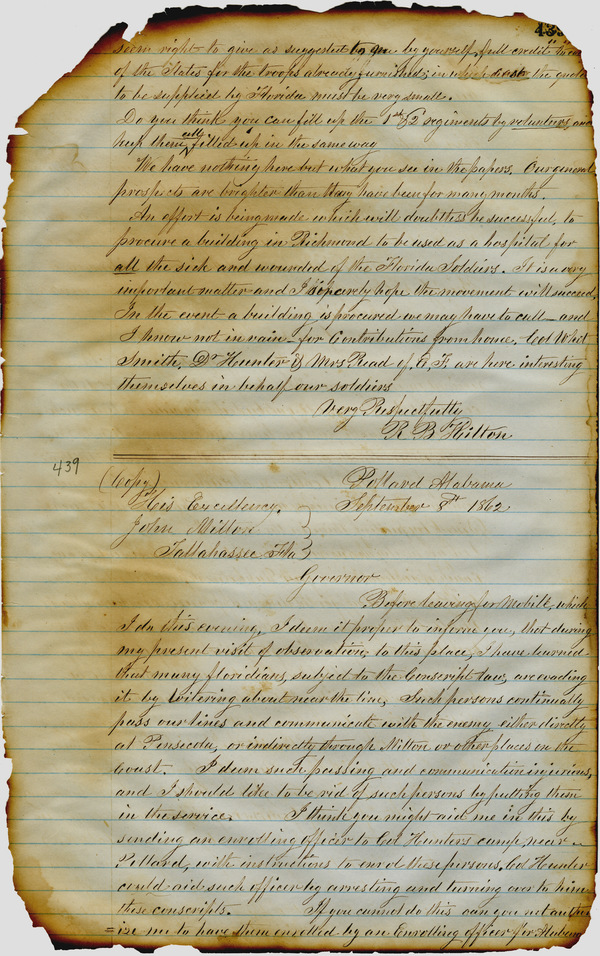 seem right to give as suggested to you by yourself, full credit to
of the States for the troops already furnished; in which the quota
to be supplied by Florida must be very small.
Do you think you can fill up the 1st & 2 regiments by volunteers, and
keep them filled up in the same way
We have nothing here but what you see in the papers. Our general
prospects are brighter than they have been for many months.
An effort is being made which will doubtless be successful, to
procure a building in Richmond to be used as a hospital for
all the sick and wounded of the Florida Soldiers. It is a very
important matter and I sincerely hope the movement will succeed,
In the event a building is procured we may have to call - and
I know not in vain - for Contributions from home. Col Whit
Smith, Dr Hunter & Mrs Read of are here interesting
themselves in behalf our soldiers
Very Respectfully
R B Hilton
439
(Copy) Pollard Alabama
His Excellency, September 8th 1862
John Milton
Tallahassee Fla
Governor
Before leaving for Mobile, which
I do this evening, I deem it proper to inform you, that during
my present visit of observation, to this place, I have learned
that many floridians, subject to the Conscript law, are evading
it by loitering about near the line, Such persons continually
pass our lines and communicate with the enemy either directly
at Pensecola, or indirectly through Milton or other places on the
Coast. I deem such passing and communication injurious,
and I should like to be rid of such persons by putting them
in the service. I think you might aid me in this by
sending an enrolling officer to Col Hunters camp near
Pollard, with instructions to enrol these persons. Col Hunter
could aid such officer by arresting and turning over to him
these conscripts. If you cannot do this can you not author
=ize me to have them enrolled by an Enrolling officer for Alabama